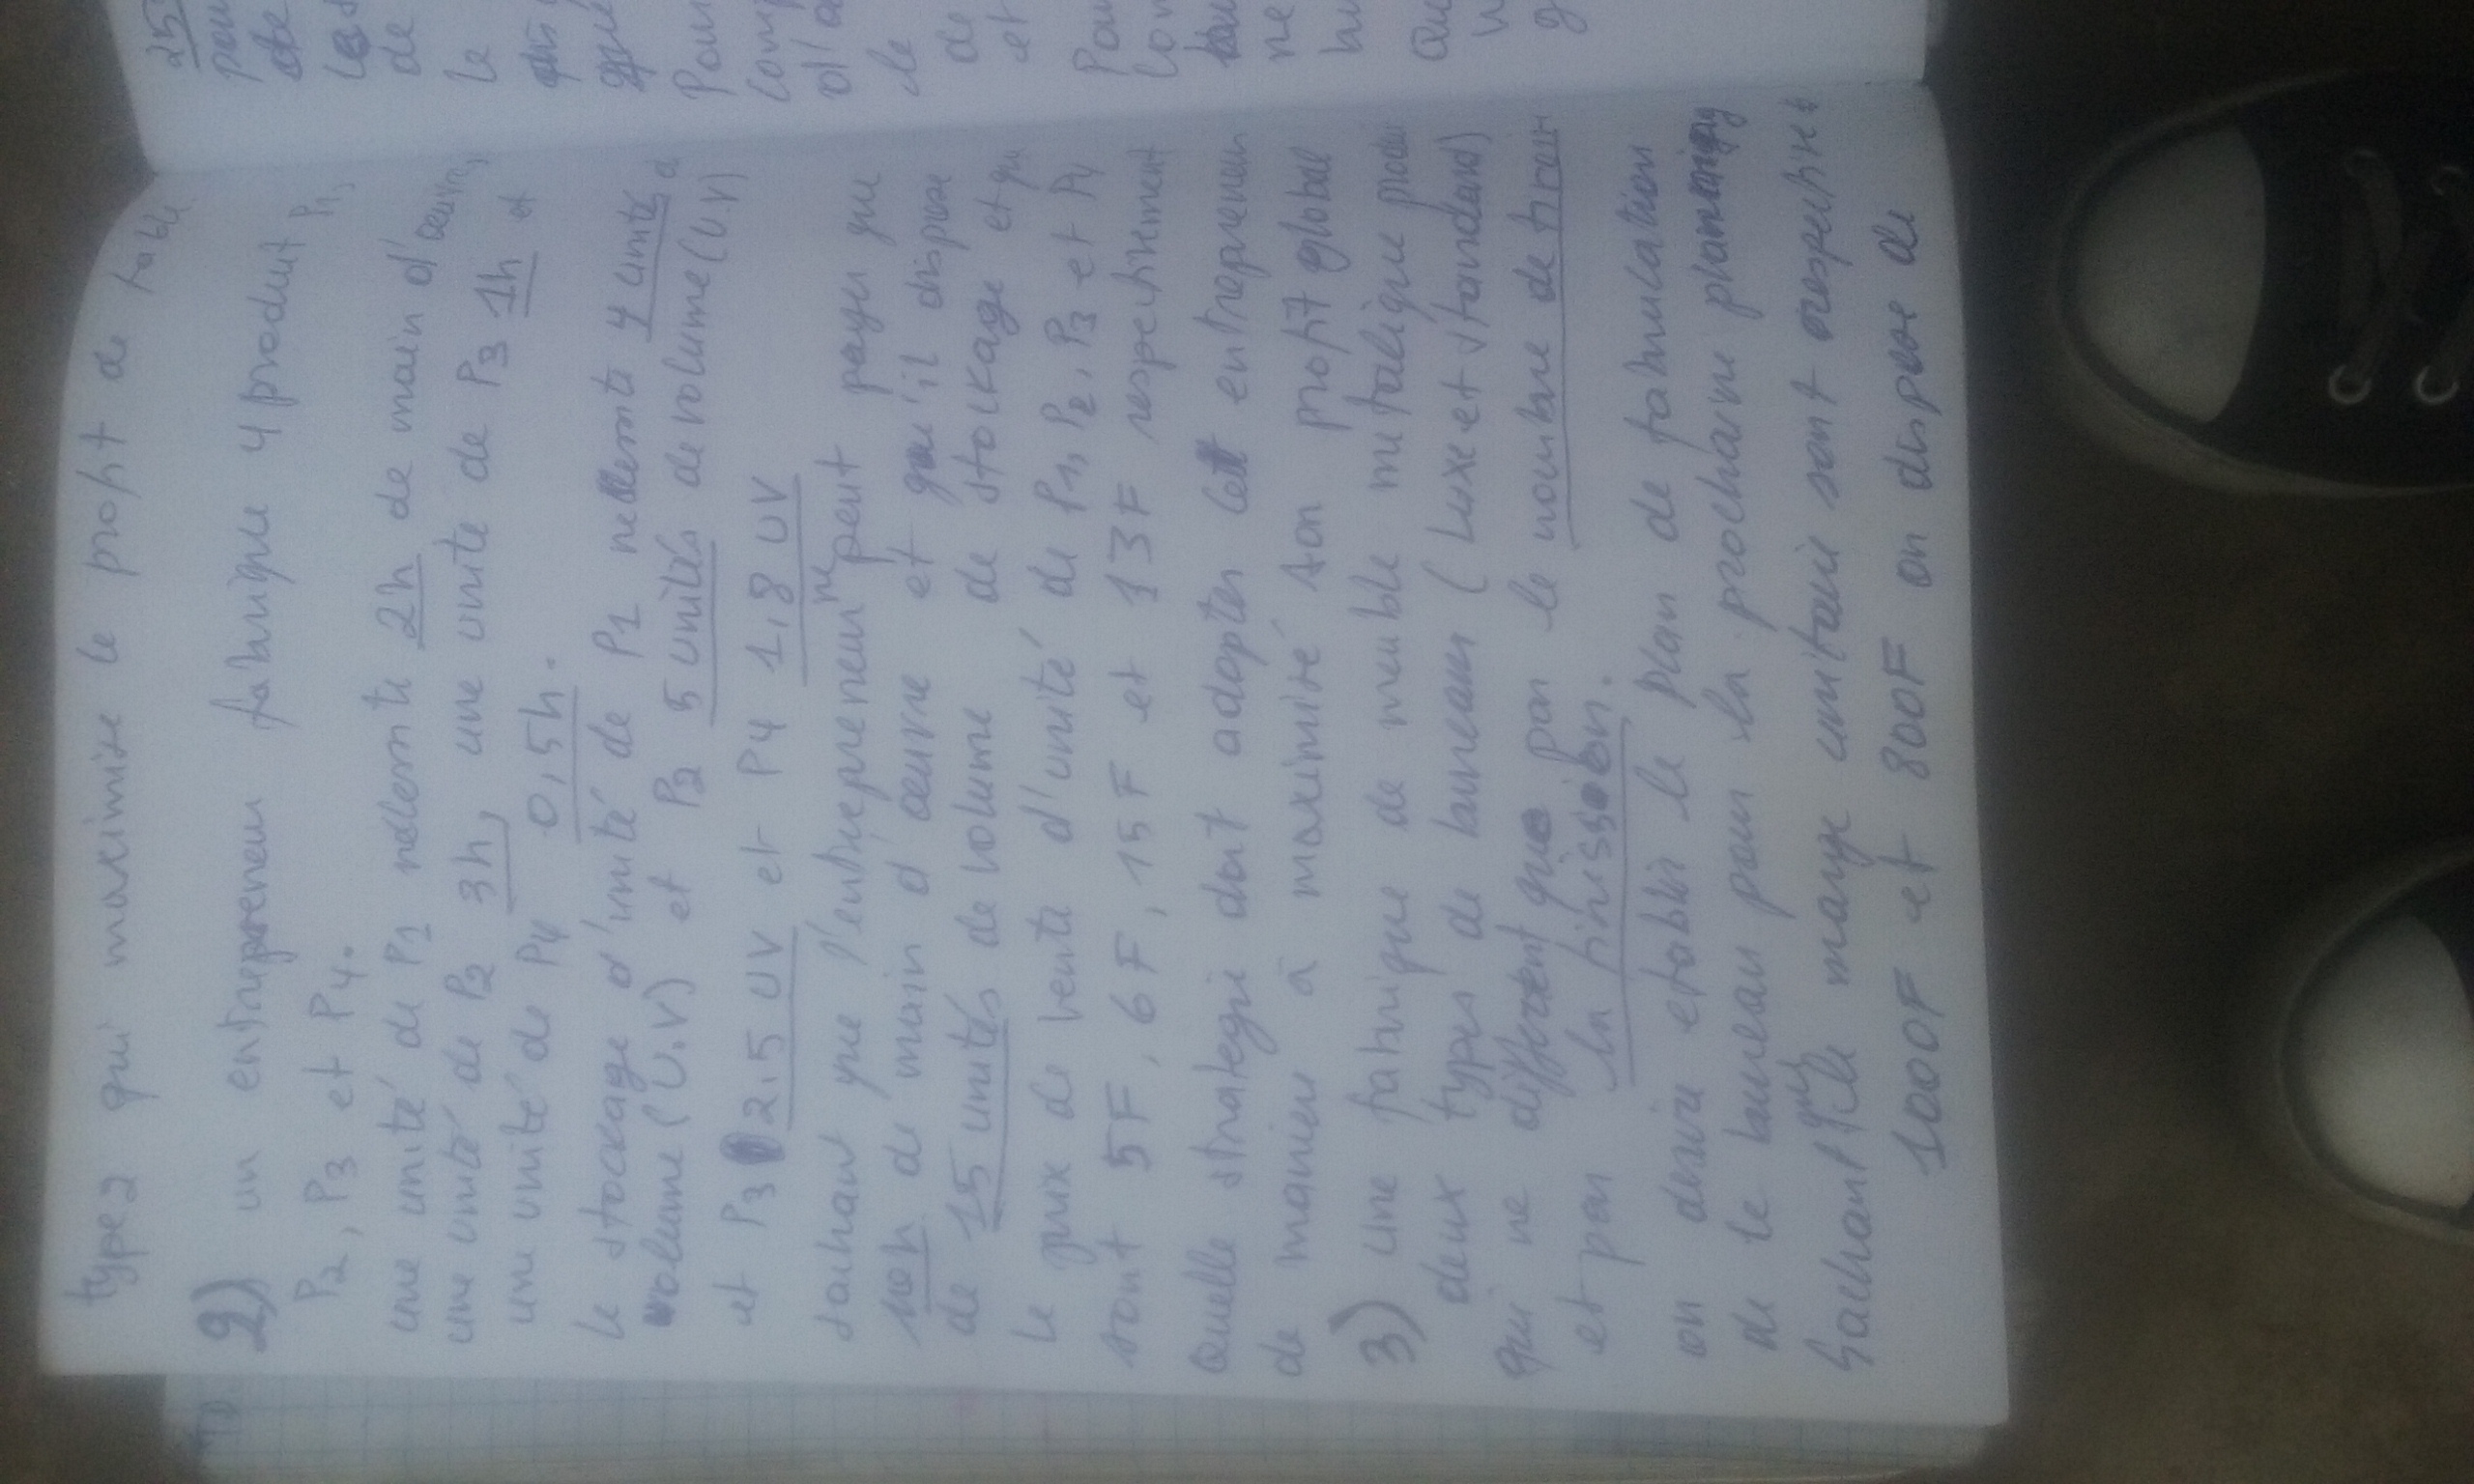 type 2 qui maximise le profit de
2) un entrepreneur fabrique 4 produit P1,
P2, P3 et P4.
une unité de P1 nécemte 2h de main d'œuvre,
une unité de P2 3h, une unité de P3 1h et
une unité de P4 0,5h.
le stockage d'unité de P1 nécemte 4 unité d
volume (U.V) et P2 5 unités de volume (U.V)
et P3 2,5 UV et P4 1,8 UV
sachant que l'entrepreneur ne peut payer que
de main d'œuvre et qu'il dispose
de 15 unités de volume de stockage et que
le prix de vente d'unité de P1, P2, P3 et P4
sont 5F, 6F, 15F et 13F respectivement
Quelle strategie doit adopter cet entrepreneur
de manier à maximisé son profit global
3) une fabrique de meuble mutalique produi
deux types de bureaux (Luxe et standard)
qui ne different que par le nombre de tiroir
et par la finission.
on desire etablir le plan de fabrication
de le bureau pour la prochaine planning
Sachant que la marge unitaire sont respective
1000F et 800F on dispose de
25
peu
de
les
de
le
que
Pour
comp
d'a
de
de
et
Pou
con
ne
bu
Qu
n
g